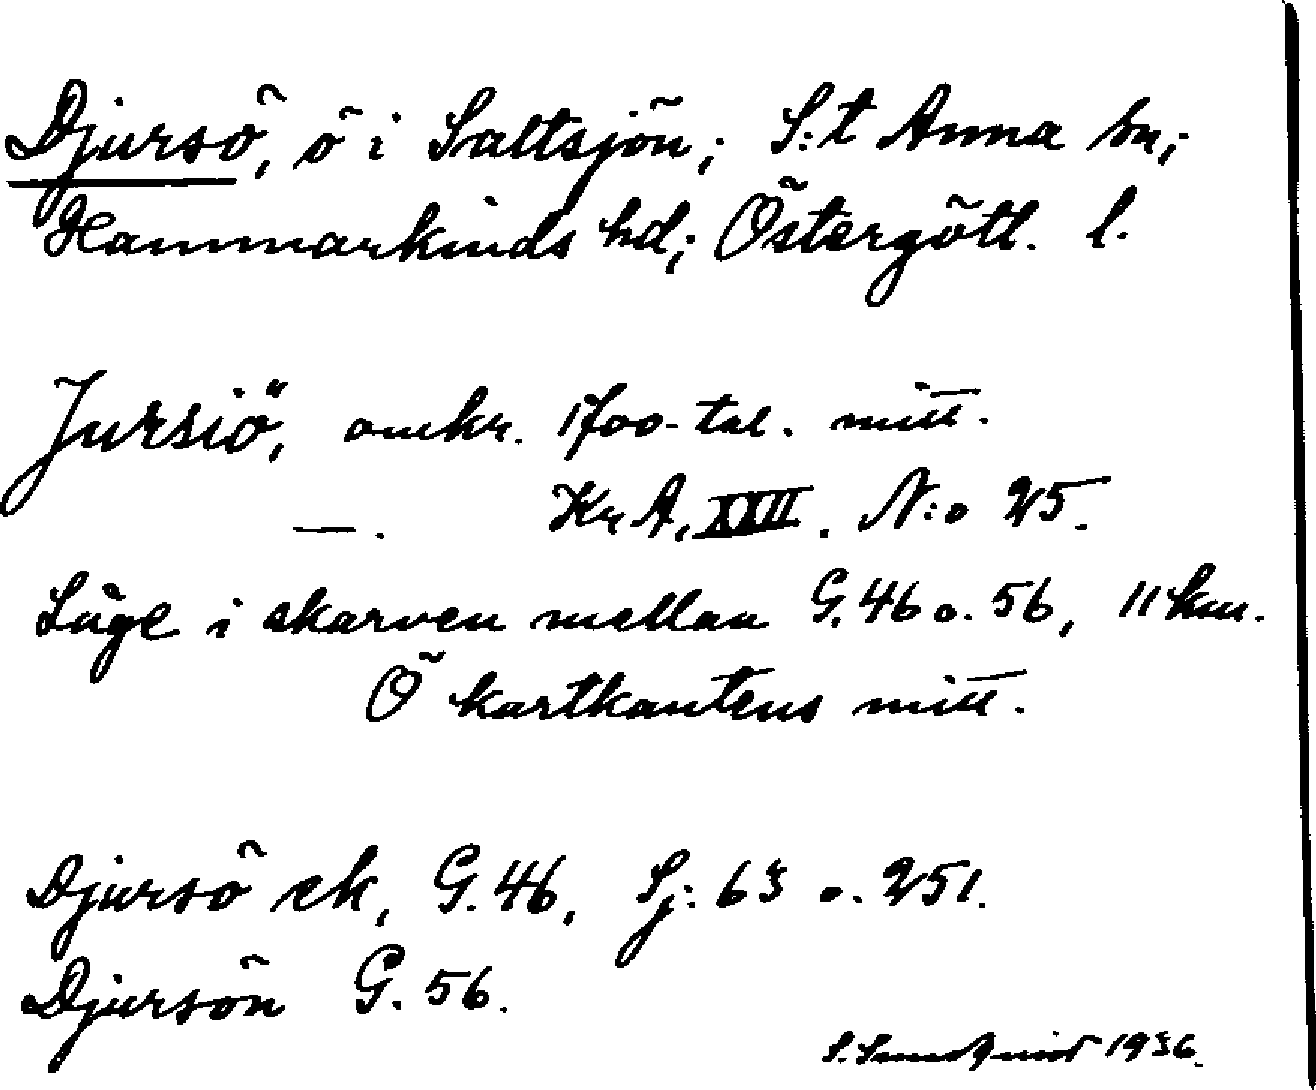 Djursö, ö i Saltsjön; S:t Anna sn;
Hammarkinds hd; Östergötl. l.
Jursiö, omkr. 1700-tal. mitt.
—. KrA, XXII. N:o 25.
Läge i skarven mellan G. 46 o. 56, 11 km.
Ö kartkantens mitt.
Djursö ek, G. 46, Sj: 63 o. 251.
Djursön G. 56.
S. Sundqvist 1936.